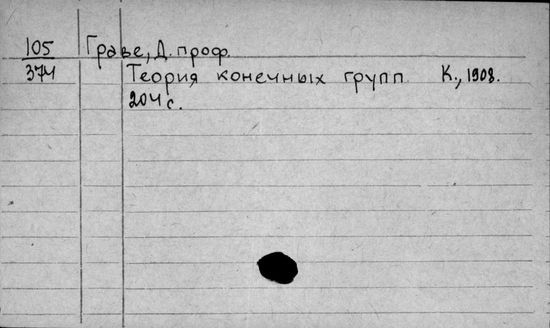 105 Граве, Д. проф.
374 Теория конечных групп К., 1908.
204 с.